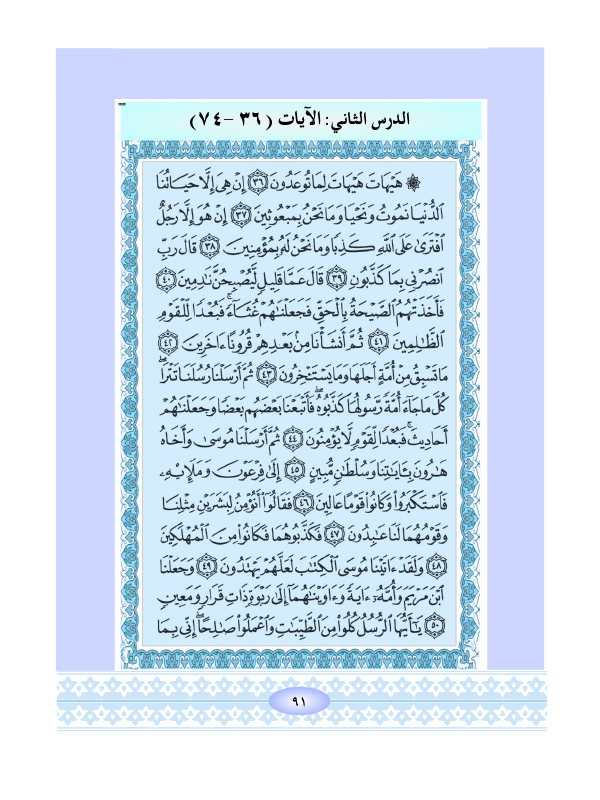 الدرس الثاني: الآيات ( ٣٦ -٧٤ )
۞ هَيْهَاتَ هَيْهَاتَ لِمَا تُوعَدُونَ ٣٦ إِنْ هِيَ إِلَّا حَيَاتُنَا
الدُّنْيَا نَمُوتُ وَنَحْيَا وَمَا نَحْنُ بِمَبْعُوثِينَ ٣٧ إِنْ هُوَ إِلَّا رَجُلٌ
افْتَرَىٰ عَلَى اللَّهِ كَذِبًا وَمَا نَحْنُ لَهُ بِمُؤْمِنِينَ ٣٨ قَالَ رَبِّ
انصُرْنِي بِمَا كَذَّبُونِ ٣٩ قَالَ عَمَّا قَلِيلٍ لَّيُصْبِحُنَّ نَادِمِينَ ٤٠
فَأَخَذَتْهُمُ الصَّيْحَةُ بِالْحَقِّ فَجَعَلْنَاهُمْ غُثَاءً ۚ فَبُعْدًا لِّلْقَوْمِ
الظَّالِمِينَ ٤١ ثُمَّ أَنشَأْنَا مِن بَعْدِهِمْ قُرُونًا ءَاخَرِينَ ٤٢
مَا تَسْبِقُ مِنْ أُمَّةٍ أَجَلَهَا وَمَا يَسْتَـْٔخِرُونَ ٤٣ ثُمَّ أَرْسَلْنَا رُسُلَنَا تَتْرَا ۖ
كُلَّ مَا جَاءَ أُمَّةً رَّسُولُهَا كَذَّبُوهُ ۚ فَأَتْبَعْنَا بَعْضَهُم بَعْضًا وَجَعَلْنَاهُمْ
أَحَادِيثَ ۚ فَبُعْدًا لِّقَوْمٍ لَّا يُؤْمِنُونَ ٤٤ ثُمَّ أَرْسَلْنَا مُوسَىٰ وَأَخَاهُ
هَارُونَ بِـَٔايَاتِنَا وَسُلْطَانٍ مُّبِينٍ ٤٥ إِلَىٰ فِرْعَوْنَ وَمَلَإِيْهِ
فَاسْتَكْبَرُوا وَكَانُوا قَوْمًا عَالِينَ ٤٦ فَقَالُوا أَنُؤْمِنُ لِبَشَرَيْنِ مِثْلِنَا
وَقَوْمُهُمَا لَنَا عَابِدُونَ ٤٧ فَكَذَّبُوهُمَا فَكَانُوا مِنَ الْمُهْلَكِينَ
٤٨ وَلَقَدْ ءَاتَيْنَا مُوسَى الْكِتَابَ لَعَلَّهُمْ يَهْتَدُونَ ٤٩ وَجَعَلْنَا
ابْنَ مَرْيَمَ وَأُمَّهُ ءَايَةً وَءَاوَيْنَاهُمَا إِلَىٰ رَبْوَةٍ ذَاتِ قَرَارٍ وَمَعِينٍ
٥٠ يَا أَيُّهَا الرُّسُلُ كُلُوا مِنَ الطَّيِّبَاتِ وَاعْمَلُوا صَالِحًا ۖ إِنِّي بِمَا
٩١